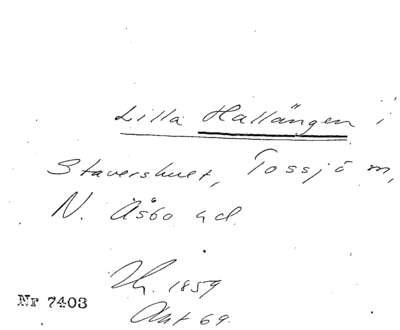 Lilla Hallängen i
Stavershult, Tossjö m,
N. Åsbo hd.
1859
Akt 69.
Nr 7403